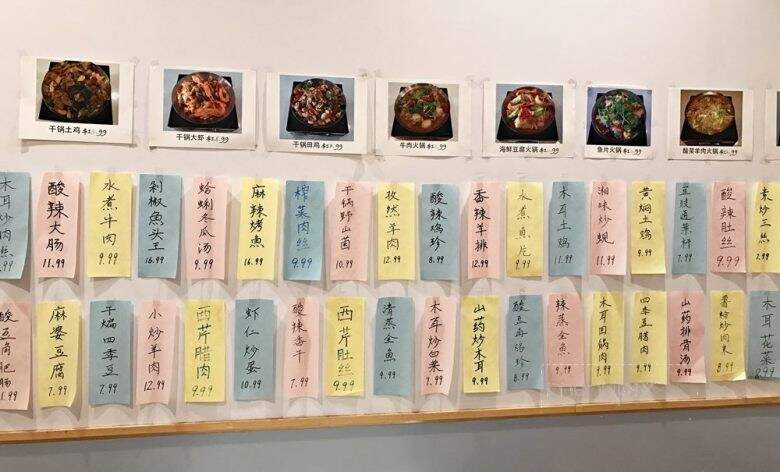 干锅土鸡
干锅大虾
干锅田鸡
牛肉火锅
海鲜豆腐火锅
鱼片火锅
酸菜羊肉火锅
木耳炒肉丝 9.99
酸辣大肠 11.99
水煮牛肉 9.99
剁椒魚头王 16.99
蛤蜊冬瓜汤 9.99
麻辣烤魚 16.99
榨菜肉丝 9.99
干锅野山菌 10.99
孜然羊肉 12.99
酸辣鸡珍 8.99
香辣羊排 12.99
水煮魚片 9.99
木耳土鸡 11.99
湘味炒蚬 11.99
黄焖土鸡 9.99
7.99
酸辣肚丝 9.99
素炒三丝 7.99
酸豆角肥肠 11.99
麻婆豆腐 7.99
干煸四季豆 7.99
小炒羊肉 12.99
西芹腊肉 9.99
虾仁炒蛋 10.99
酸辣香干 7.99
西芹肚丝 9.99
清蒸全魚
木耳炒白菜 7.99
山药炒木耳 9.99
8.99
辣蒸全魚 9.99
木耳回锅肉 9.99
四季豆腊肉 9.99
山药排骨汤 9.99
青椒炒肉末 8.99
木耳花菜 8.99